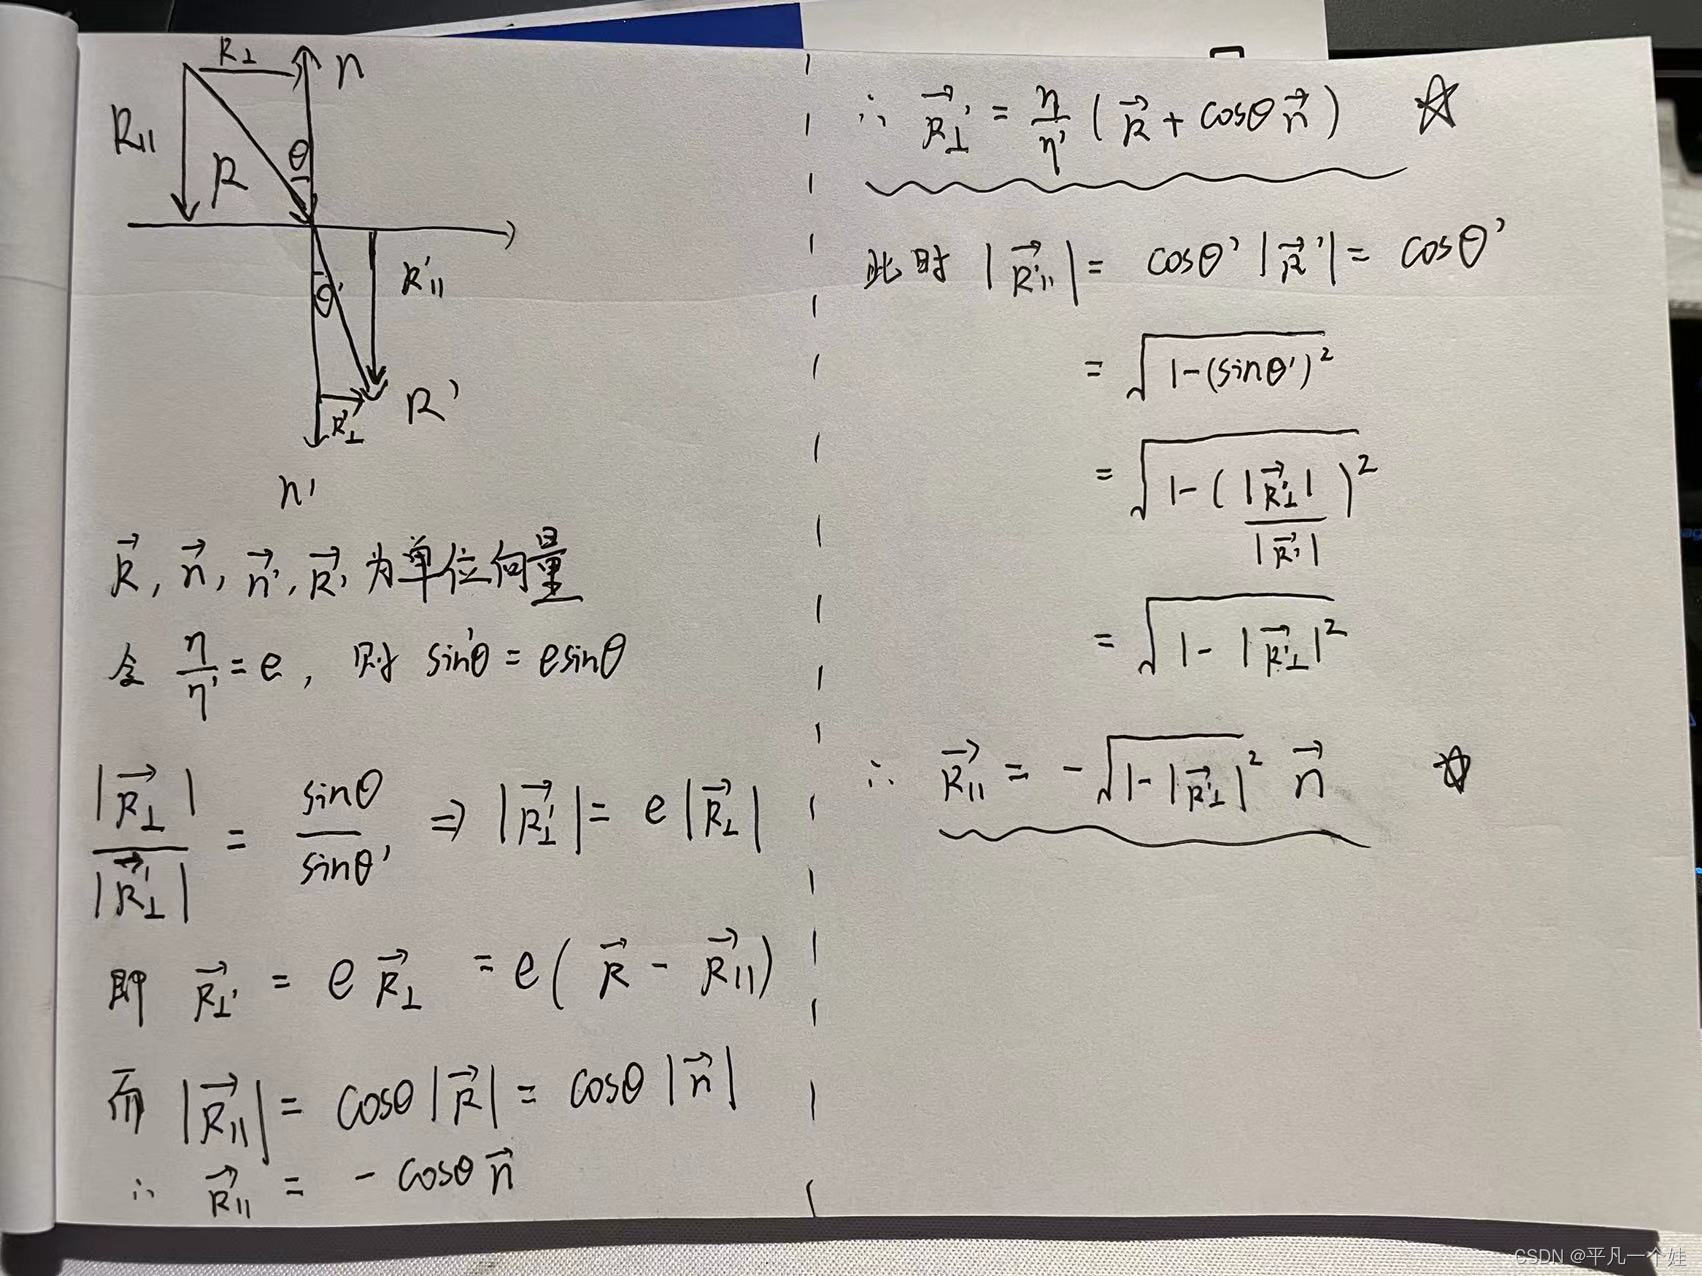 R⊥
n
R∥
R
θ
θ'
R'∥
R'⊥
R'
n'
R⃗, n⃗, n⃗', R⃗' 为单位向量
令 η/η' = e, 则 sin'θ = e sinθ
|R⃗⊥| / |R⃗'⊥| = sinθ / sinθ' ⇒ |R⃗'⊥| = e |R⃗⊥|
即 R⃗⊥' = e R⃗⊥ = e( R⃗ - R⃗∥)
而 |R⃗∥| = cosθ |R⃗| = cosθ |n⃗|
∴ R⃗∥ = - cosθ n⃗
∴ R⃗⊥' = η/η' ( R⃗ + cosθ n⃗ ) ☆
此时 |R⃗'∥| = cosθ' |R⃗'| = cosθ'
= √(1-(sinθ')²)
= √(1-( |R⃗'⊥| / |R⃗'| )²)
= √(1- |R⃗'⊥|²)
∴ R⃗∥ = -√(1-|R⃗'⊥|²) n⃗ ☆
CSDN @平凡一个娃